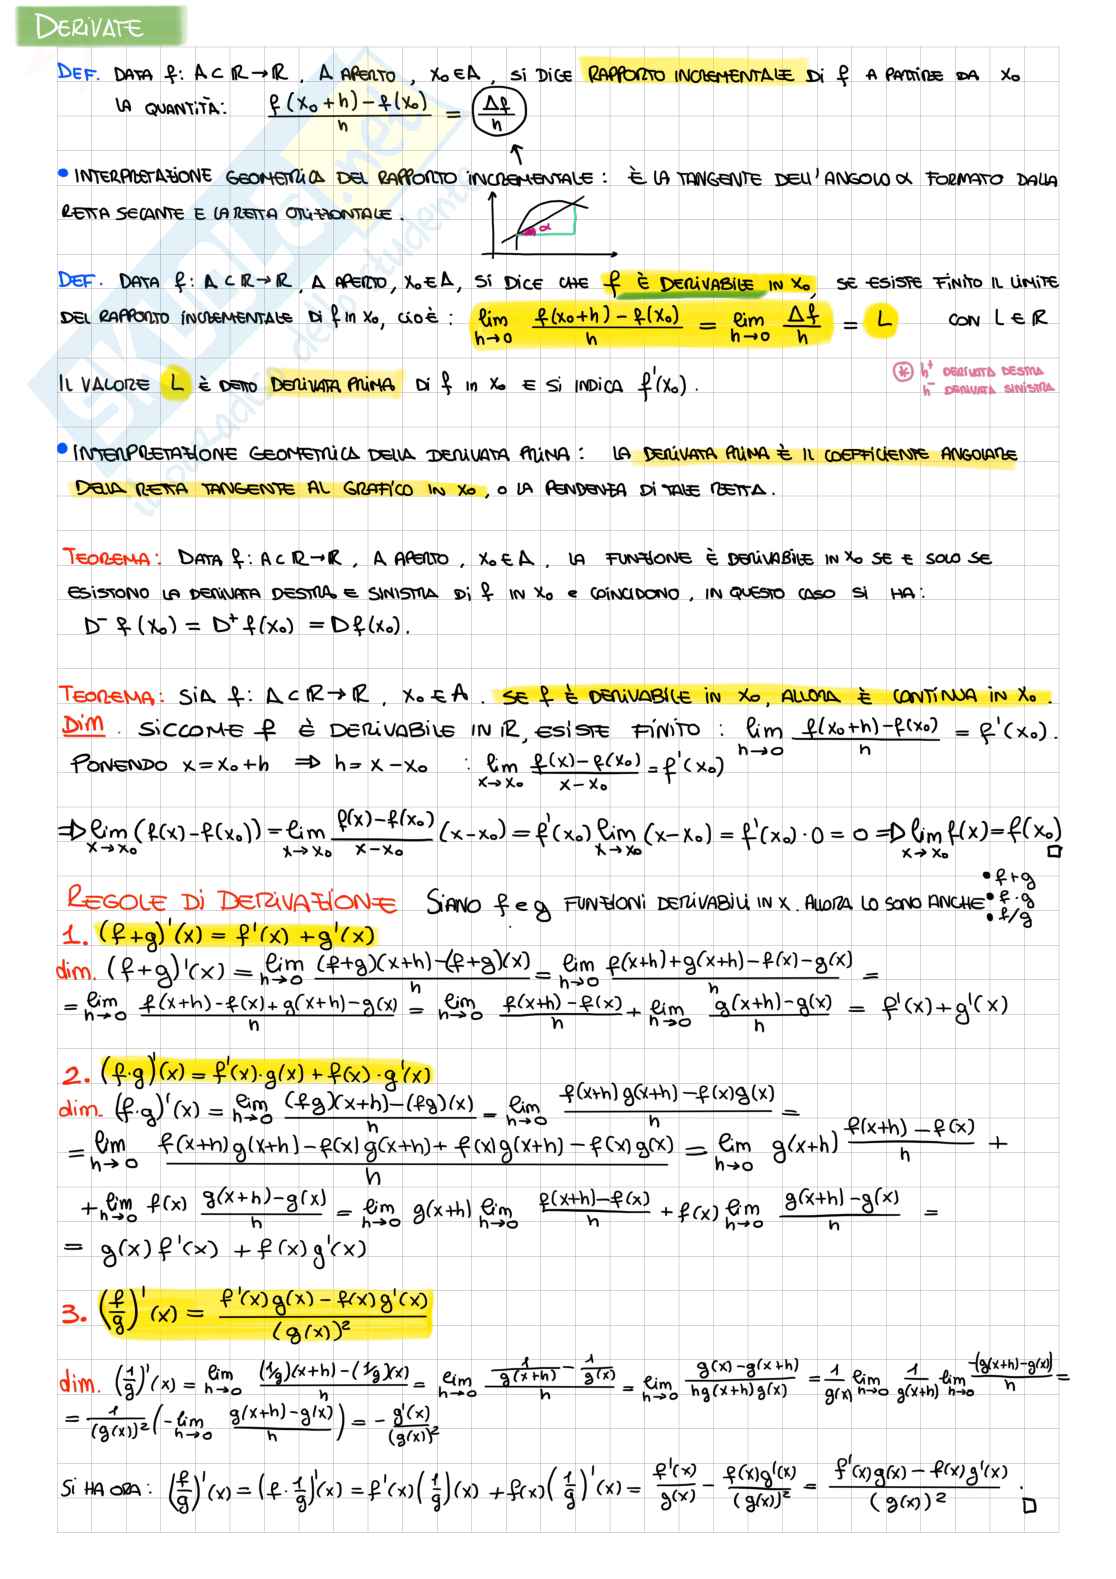 DERIVATE
DEF. DATA f: A⊂ℝ→ℝ, A APERTO, x₀∈A, SI DICE RAPPORTO INCREMENTALE DI f A PARTIRE DA x₀
LA QUANTITÀ: (f(x₀+h)-f(x₀))/h = Δf/h
• INTERPRETAZIONE GEOMETRICA DEL RAPPORTO INCREMENTALE: È LA TANGENTE DELL'ANGOLO α FORMATO DALLA
RETTA SECANTE E LA RETTA ORIZZONTALE.
α
DEF. DATA f: A⊂ℝ→ℝ, A APERTO, x₀∈A, SI DICE CHE f È DERIVABILE IN x₀, SE ESISTE FINITO IL LIMITE
DEL RAPPORTO INCREMENTALE DI f IN x₀, CIOÈ: lim h→0 (f(x₀+h)-f(x₀))/h = lim h→0 Δf/h = L CON L∈ℝ
IL VALORE L È DETTO DERIVATA PRIMA DI f IN x₀ E SI INDICA f'(x₀).
* h⁺ DERIVATA DESTRA
h⁻ DERIVATA SINISTRA
• INTERPRETAZIONE GEOMETRICA DELLA DERIVATA PRIMA: LA DERIVATA PRIMA È IL COEFFICIENTE ANGOLARE
DELLA RETTA TANGENTE AL GRAFICO IN x₀, O LA PENDENZA DI TALE RETTA.
TEOREMA: DATA f: A⊂ℝ→ℝ, A APERTO, x₀∈A, LA FUNZIONE È DERIVABILE IN x₀ SE E SOLO SE
ESISTONO LA DERIVATA DESTRA E SINISTRA DI f IN x₀ E COINCIDONO, IN QUESTO CASO SI HA:
D⁻f(x₀) = D⁺f(x₀) = Df(x₀).
TEOREMA: SIA f: A⊂ℝ→ℝ, x₀∈A. SE f È DERIVABILE IN x₀, ALLORA È CONTINUA IN x₀.
DIM. SICCOME f È DERIVABILE IN ℝ, ESISTE FINITO: lim h→0 (f(x₀+h)-f(x₀))/h = f'(x₀).
PONENDO x=x₀+h ⇒ h=x-x₀ : lim x→x₀ (f(x)-f(x₀))/(x-x₀) = f'(x₀)
⇒ lim x→x₀ (f(x)-f(x₀)) = lim x→x₀ (f(x)-f(x₀))/(x-x₀) (x-x₀) = f'(x₀) lim x→x₀ (x-x₀) = f'(x₀)·0 = 0 ⇒ lim x→x₀ f(x) = f(x₀) □
REGOLE DI DERIVAZIONE SIANO f e g FUNZIONI DERIVABILI IN x. ALLORA LO SONO ANCHE • f+g
• f·g
• f/g
1. (f+g)'(x) = f'(x)+g'(x)
dim. (f+g)'(x) = lim h→0 ((f+g)(x+h)-(f+g)(x))/h = lim h→0 (f(x+h)+g(x+h)-f(x)-g(x))/h =
= lim h→0 (f(x+h)-f(x)+g(x+h)-g(x))/h = lim h→0 (f(x+h)-f(x))/h + lim h→0 (g(x+h)-g(x))/h = f'(x)+g'(x)
2. (f·g)'(x) = f'(x)·g(x)+f(x)·g'(x)
dim. (f·g)'(x) = lim h→0 ((fg)(x+h)-(fg)(x))/h = lim h→0 (f(x+h)g(x+h)-f(x)g(x))/h =
= lim h→0 (f(x+h)g(x+h)-f(x)g(x+h)+f(x)g(x+h)-f(x)g(x))/h = lim h→0 g(x+h) (f(x+h)-f(x))/h +
+ lim h→0 f(x) (g(x+h)-g(x))/h = lim h→0 g(x+h) lim h→0 (f(x+h)-f(x))/h + f(x) lim h→0 (g(x+h)-g(x))/h =
= g(x)f'(x) + f(x)g'(x)
3. (f/g)'(x) = (f'(x)g(x)-f(x)g'(x))/(g(x))²
dim. (1/g)'(x) = lim h→0 ((1/g)(x+h)-(1/g)(x))/h = lim h→0 (1/g(x+h) - 1/g(x))/h = lim h→0 (g(x)-g(x+h))/(hg(x+h)g(x)) = 1/g(x) lim h→0 1/g(x+h) lim h→0 -(g(x+h)-g(x))/h =
= 1/(g(x))² (-lim h→0 (g(x+h)-g(x))/h) = - g'(x)/(g(x))²
SI HA ORA: (f/g)'(x) = (f·1/g)'(x) = f'(x)(1/g)(x) + f(x)(1/g)'(x) = f'(x)/g(x) - f(x)g'(x)/(g(x))² = (f'(x)g(x)-f(x)g'(x))/(g(x))². □